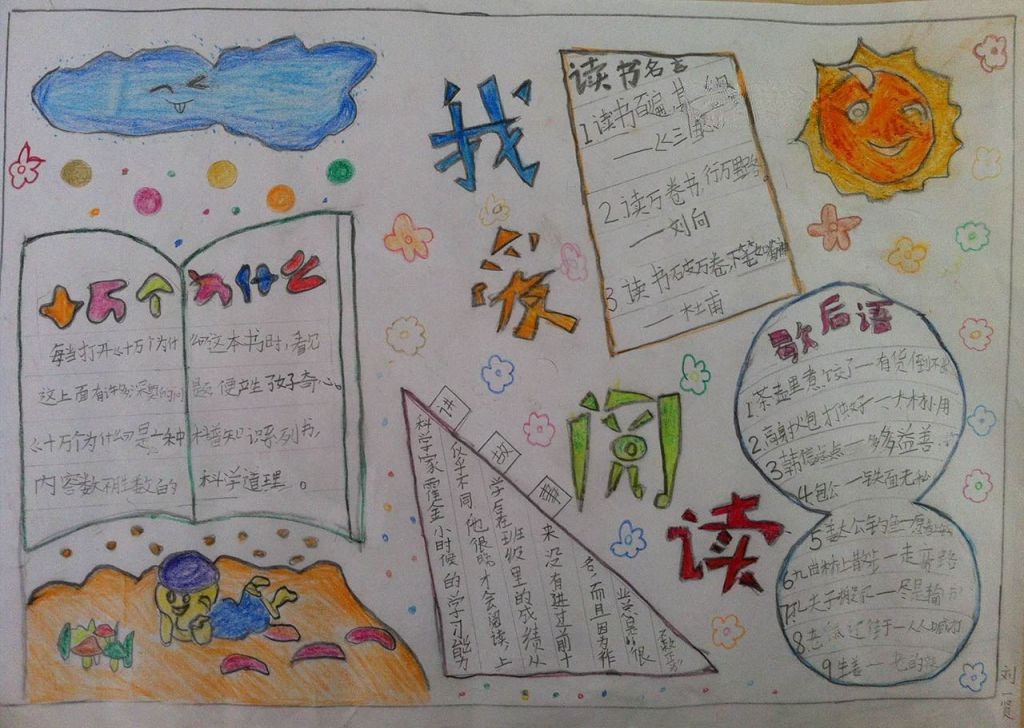 我
爱
阅
读
读书名言
1读书百遍,其
——《三国
2读万卷书,行万里路。
——刘向
3读书破万卷,下笔如有神
——杜甫
十万个为什么
每当打开《十万个为什么》这本书时,看见
这上面有许多深奥的问题,便产生了好奇心。
《十万个为什么》是一种增知识系列书,
内容数不胜数的科学道理。
讲故事
科学家霍金小时候的学习能力
似乎不同,他很晚才会阅读,上
学后在班级里的成绩从
来没有进过前十
名,而且因为作
业总是“很
歇后语
1茶壶里煮饺子—有货倒不出
2高射炮打蚊子—大材小用
3韩信点兵—多多益善
4包公—铁面无私
5姜太公钓鱼—愿
6九曲桥上散步—走弯路
7孔夫子搬家—尽是输
8老鼠过街—人人喊打
9生姜—老的辣
刘一贤